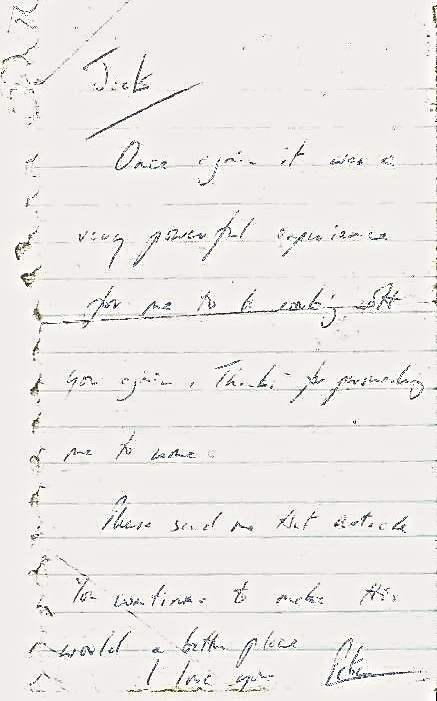 Jack
Once again it was a
very powerful experience
for me to be working with
you again. Thanks for persuading
me to come.
Please send me that article
You continue to make this
world a better place
I love you Peter